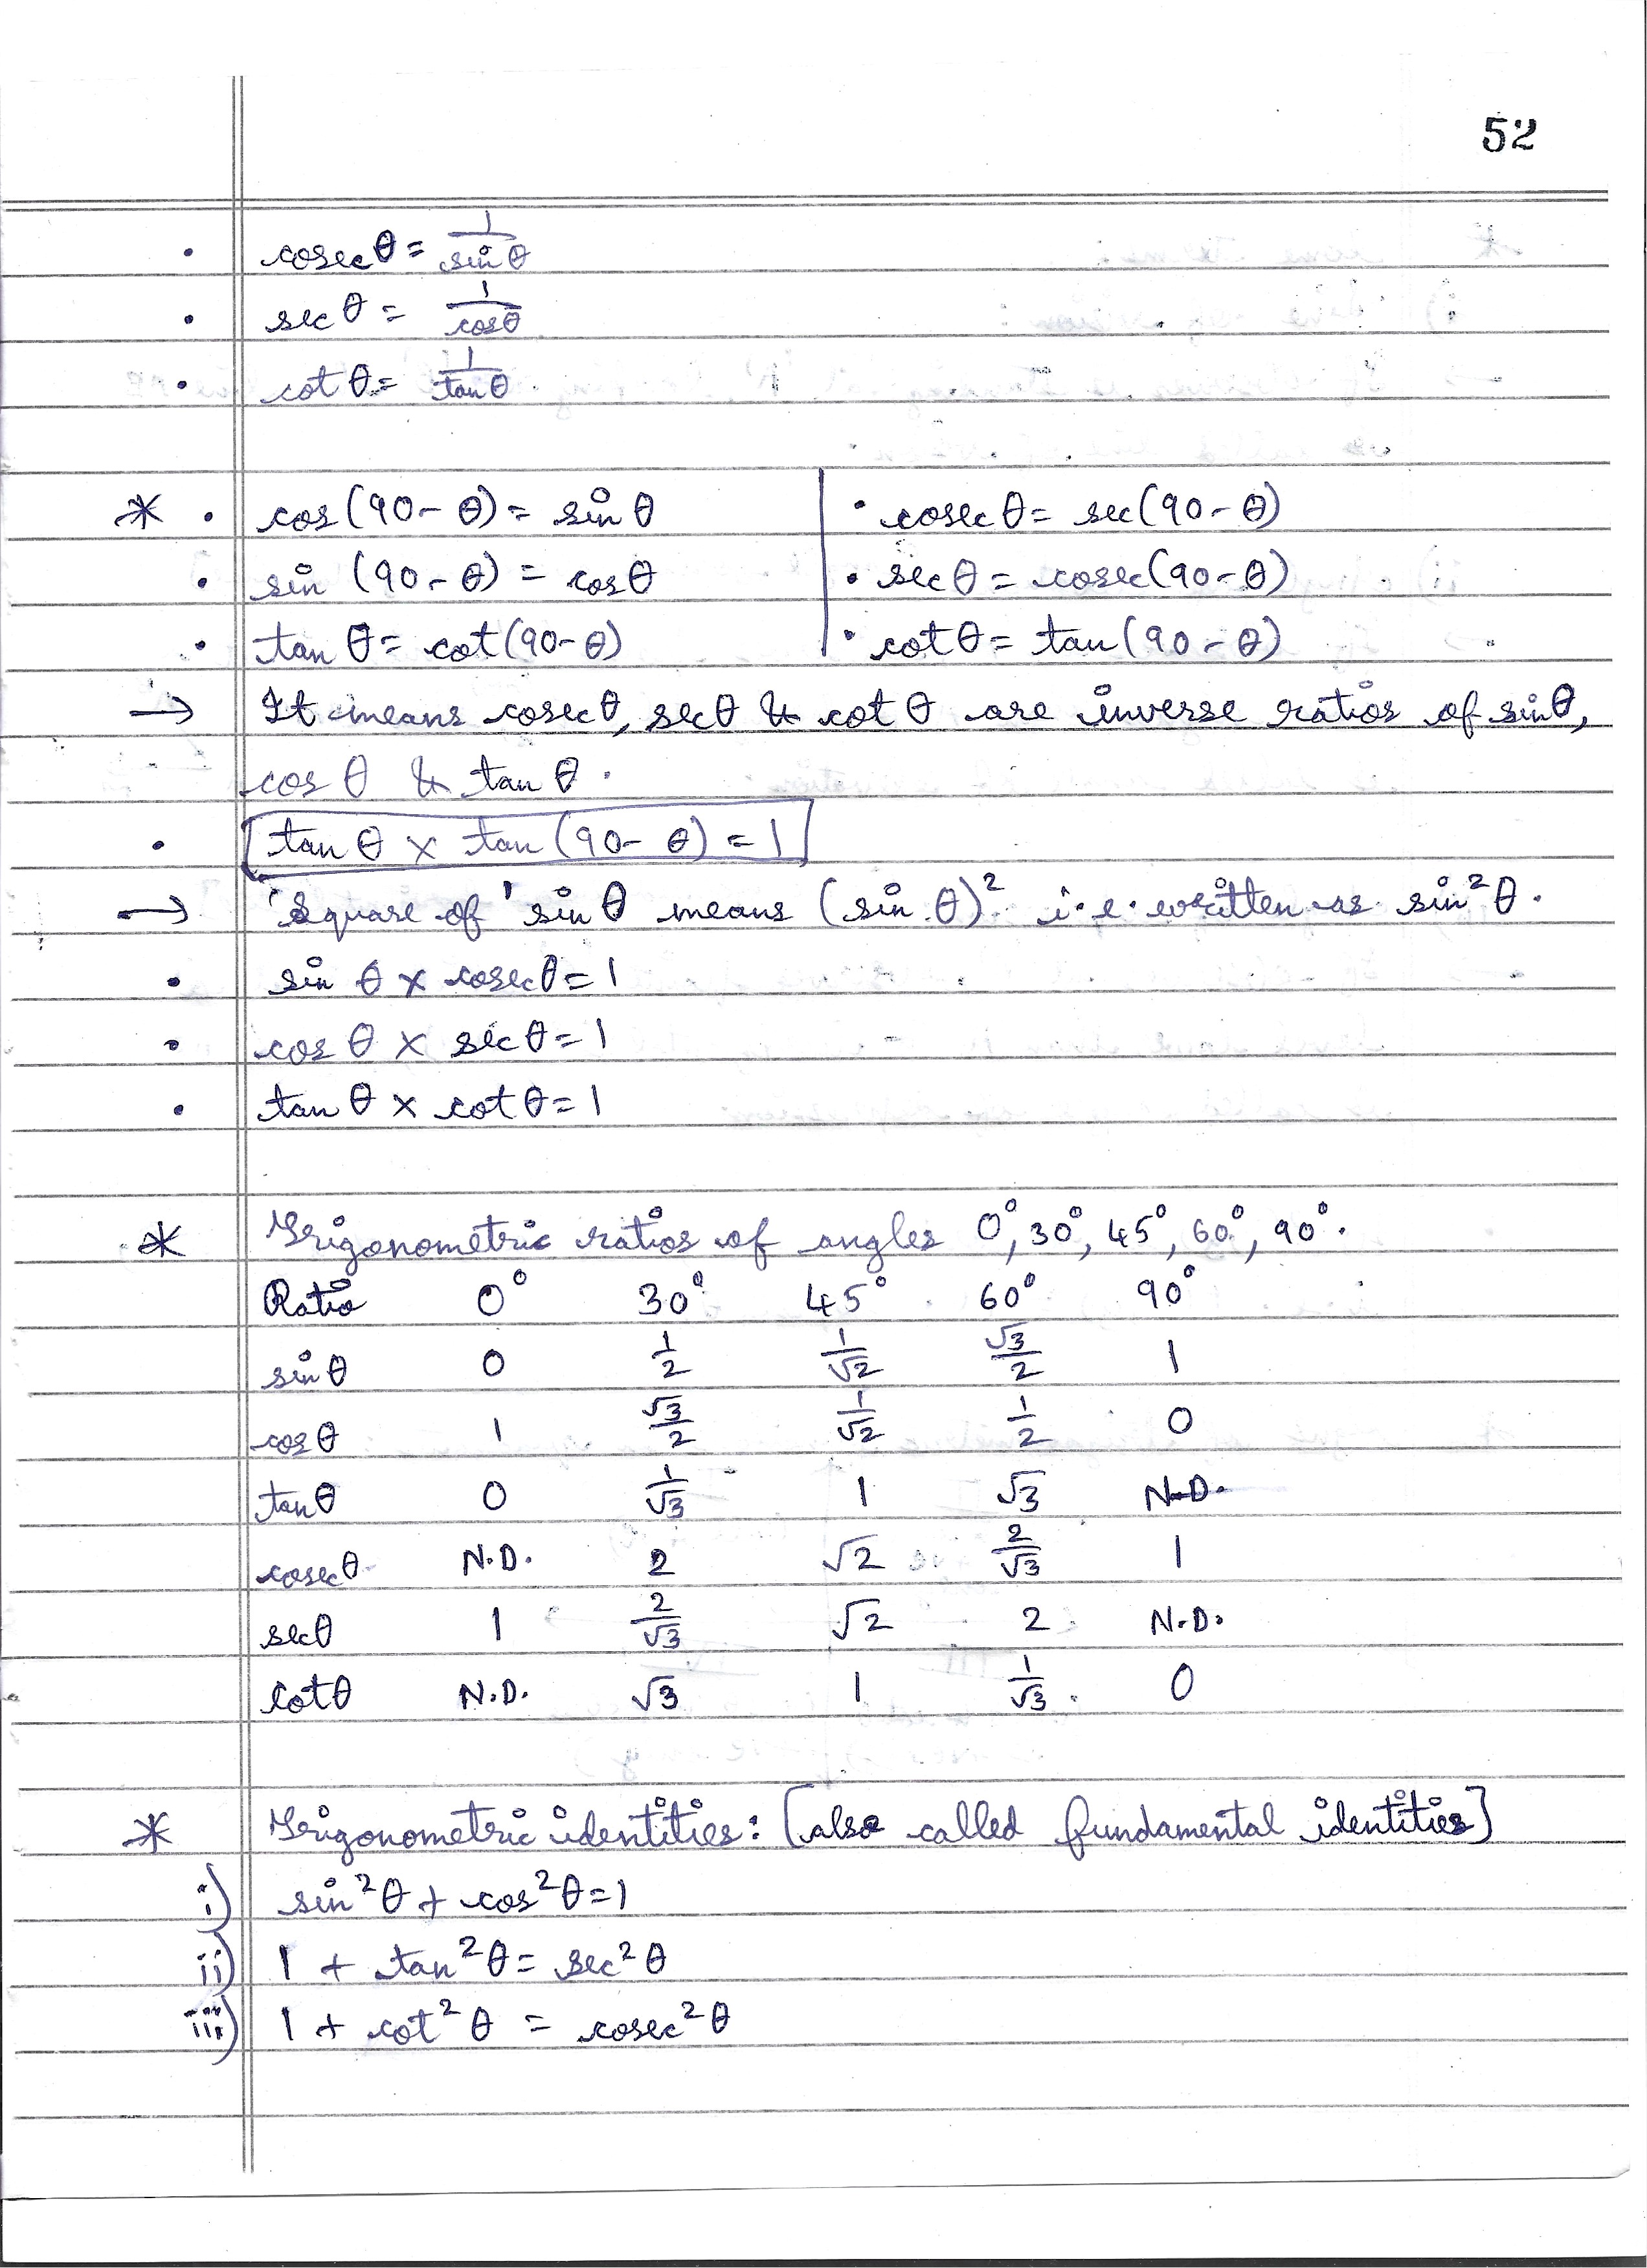 52
• cosec θ = 1/sin θ
• sec θ = 1/cos θ
• cot θ = 1/tan θ
* • cos (90 - θ) = sin θ | • cosec θ = sec (90 - θ)
• sin (90 - θ) = cos θ | • sec θ = cosec (90 - θ)
• tan θ = cot (90 - θ) | • cot θ = tan (90 - θ)
→ It means cosec θ, sec θ & cot θ are inverse ratios of sin θ,
cos θ & tan θ.
• tan θ × tan (90 - θ) = 1
→ 'Square of' sin θ means (sin θ)² i.e. written as sin²θ.
• sin θ × cosec θ = 1
• cos θ × sec θ = 1
• tan θ × cot θ = 1
* Trigonometric ratios of angles 0°, 30°, 45°, 60°, 90°.
Ratio 0° 30° 45° 60° 90°
sin θ 0 1/2 1/√2 √3/2 1
cos θ 1 √3/2 1/√2 1/2 0
tan θ 0 1/√3 1 √3 N.D.
cosec θ N.D. 2 √2 2/√3 1
sec θ 1 2/√3 √2 2 N.D.
cot θ N.D. √3 1 1/√3 0
* Trigonometric identities: [also called fundamental identities]
i) sin²θ + cos²θ = 1
ii) 1 + tan²θ = sec²θ
iii) 1 + cot²θ = cosec²θ